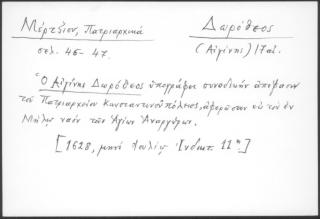 Μέρτζιου, Πατριαρχικά
Δωρόθεος
σελ. 46-47.
(Αἰγίνης) 17 αἰ.
Ὁ Αἰγίνης Δωρόθεος ὑπογράφει συνοδικὴν ἀπόφασιν
τοῦ Πατριαρχείου Κωνσταντινουπόλεως, ἀφορῶσαν εἰς τὸν ἐν
Μήλῳ ναὸν τῶν Ἁγίων Ἀναργύρων.
[1628, μηνὶ Ἰουλίῳ Ἰνδικτ. 11ῃ]